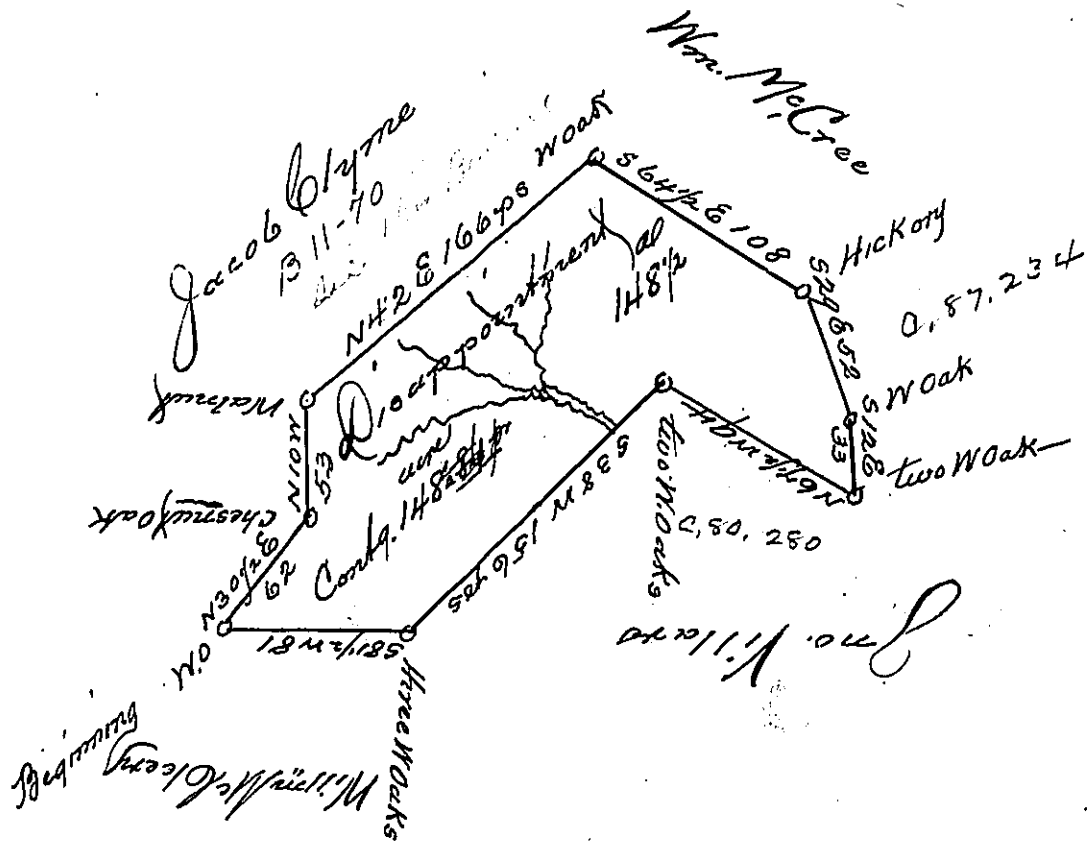 Wm. McCree
Jacob Clyme
B 11-70
W Oak
N 42 E 166 ps
S 64 1/2 E 108
Hickory
S 29 E 52
C, 87, 234
W Oak
S 12 E
33
two W Oak
N 67 1/2 W 94
two W Oaks
C, 80, 280
Jno. Villard
S 38 W 156 ps
three W Oaks
S 81 1/2 W 81
William McCleery
Beginning W.O
N 30 1/2 E
62
Chesnut Oak
N 10 W
53
Walnut
Disappointment
al
148 1/2
Contg. 148